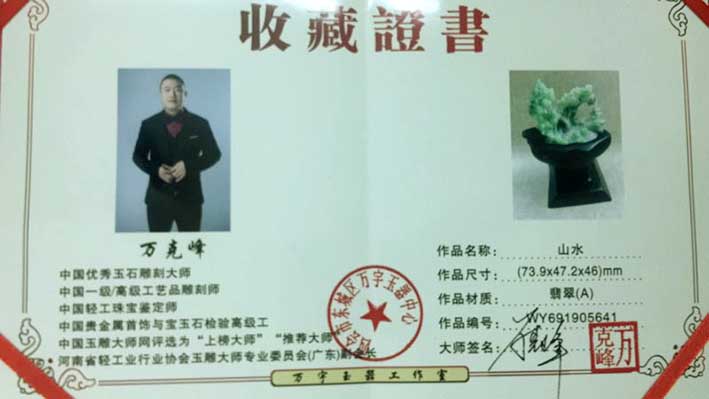 收藏證書
万克峰
中国优秀玉石雕刻大师
中国一级/高级工艺品雕刻师
中国轻工珠宝鉴定师
中国贵金属首饰与宝玉石检验高级工
中国玉雕大师网评选为“上榜大师”“推荐大师”
河南省轻工业行业协会玉雕大师专业委员会(广东)副会长
作品名称: 山水
作品尺寸: (73.9x47.2x46)mm
作品材质: 翡翠(A)
作品编号: WY691905641
大师签名:
万克峰
市东城区万宇玉器中心
万宇玉器工作室